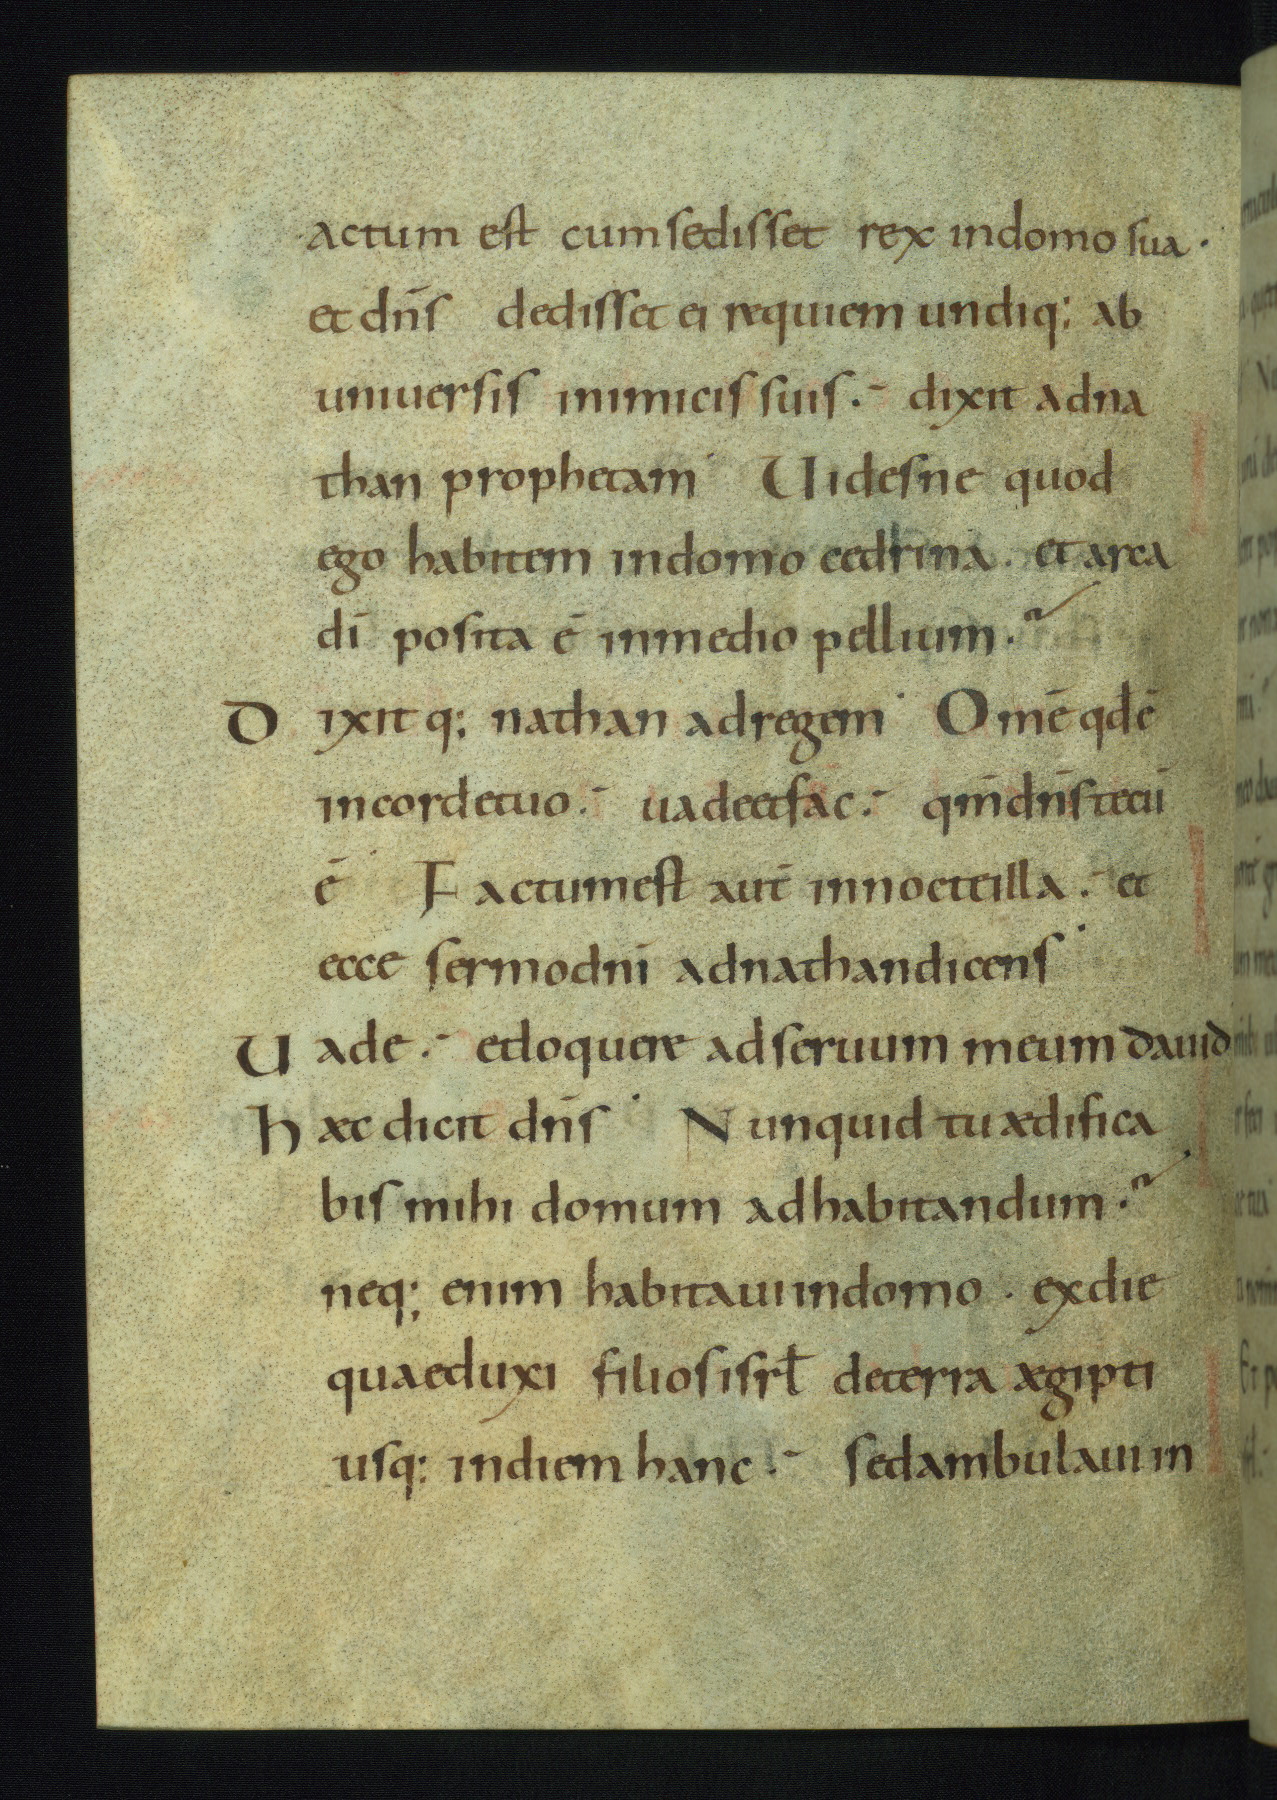 actum est cum sedisset rex in domo sua.
et dn̄s dedisset ei requiem undiq; ab
uniuersis inimicis suis. dixit ad na
than prophetam Uidesne quod
ego habitem in domo cedrina. et arca
dī posita ē in medio pellium.
Dixitq; nathan ad regem Omē qđ ē
in corde tuo. uade et fac. qm̄ dn̄s tecū
ē Factum est aut̄ in nocte illa. et
ecce sermo dn̄i ad nathan dicens
Uade. et loquere ad seruum meum dauid
Hæc dicit dn̄s Nunquid tu ædifica
bis mihi domum ad habitandum.
neq; enim habitaui in domo. ex die
qua eduxi filios isrł de terra ægipti
usq; in diem hanc. sed ambulaui in